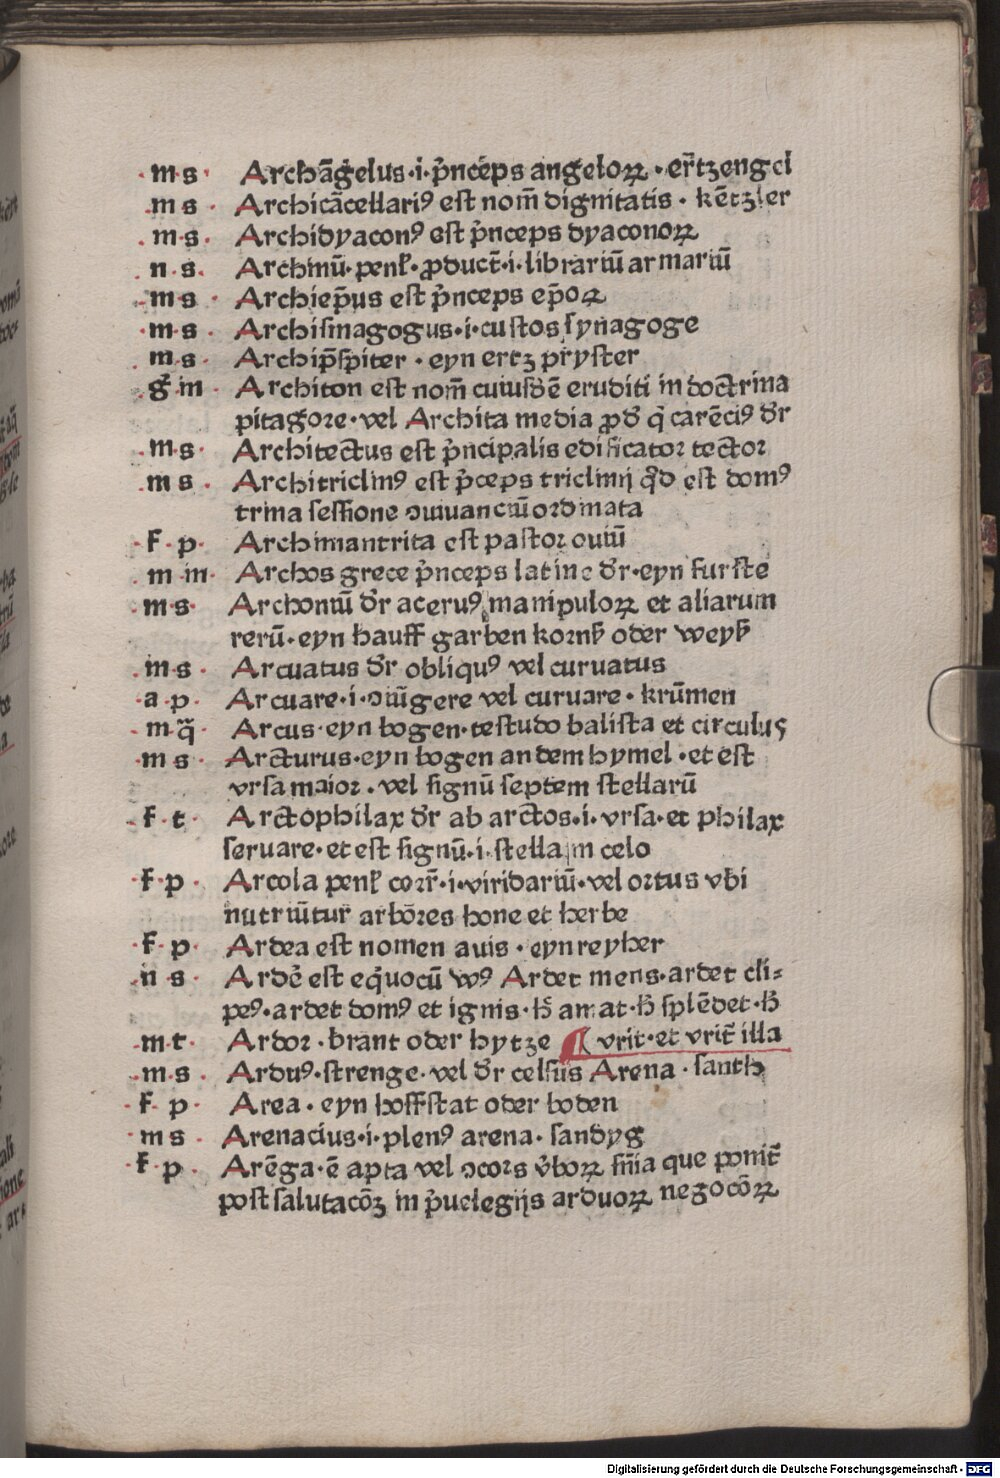 ·m·s· Archāgelus·i·p̄nceps angeloꝝ·ertzengel
·m s· Archicācellariꝰ est nom̄ dignitatis·kētzler
·m·s· Archidyaconꝰ est p̄nceps dyaconoꝝ
n·s· Archiuū·penł·ꝓduct̄·i·librariū armariū
·m s Archiep̄us est p̄nceps ep̄oꝝ
·m·s· Archisinagogus·i·custos synagoge
m s· Archip̄sp̄iter·eyn ertz pryster
g̃·m· Architon est nom̄ cuiusdē eruditi in doctrina
pitagore·vel Archita media ꝓd' q̄ carēciꝰ dr̄
·m·s· Architectus est p̄ncipalis edificator tector
·m s· Architriclinꝰ est p̄ceps triclinij qd̄ est domꝰ
trina sessione ꝯuiuanciū ordinata
·f·p· Archimantrita est pastor ouiū
·m m· Archos grece p̄nceps latine dr̄·eyn furste
·m·s· Archoniū dr̄ aceruꝰ manipuloꝝ et aliarum
rerū·eyn hauff garben kornß oder weyß
·m·s· Arcuatus dr̄ obliquꝰ vel curuatus
·a·p· Arcuare·i·ꝯiūgere vel curuare·krūmen
·m·q̄· Arcus·eyn bogen·testudo balista et circulus
·m s· Arcturus·eyn bogen an dem hymel·et est
vrsa maior·vel signū septem stellarū
·f·t· Arctophilax dr̄ ab arctos·i·vrsa·et philax
seruare·et est signū·i·stella in celo
·f·p· Arcola penł corr̄·i·viridariū·vel ortus vbi
nutriūtur arbōres bone et herbe
·f·p· Ardea est nomen auis·eyn reyher
·n s· Ardē est eq̄uocū vꝰ Ardet mens·ardet cli-
peꝰ·ardet domꝰ et ignis·h̄ amat·h̄ splēdet·h̄
·m·t· Ardor·brant oder hytze ¶ vrit·et vrit̄ illa
·m·s· Arduꝰ·strenge·vel dr̄ celsus Arena·santh
·f·p· Area·eyn hoffstat oder boden
m s· Arenacius·i·plenꝰ arena·sandyg
·f·p· Arēga·ē apta vel ꝯcors v̄boꝝ snīa que ponit̄
post salutacōꝫ in p̄uelegijs arduoꝝ negocōꝝ
Digitalisierung gefördert durch die Deutsche Forschungsgemeinschaft - DFG